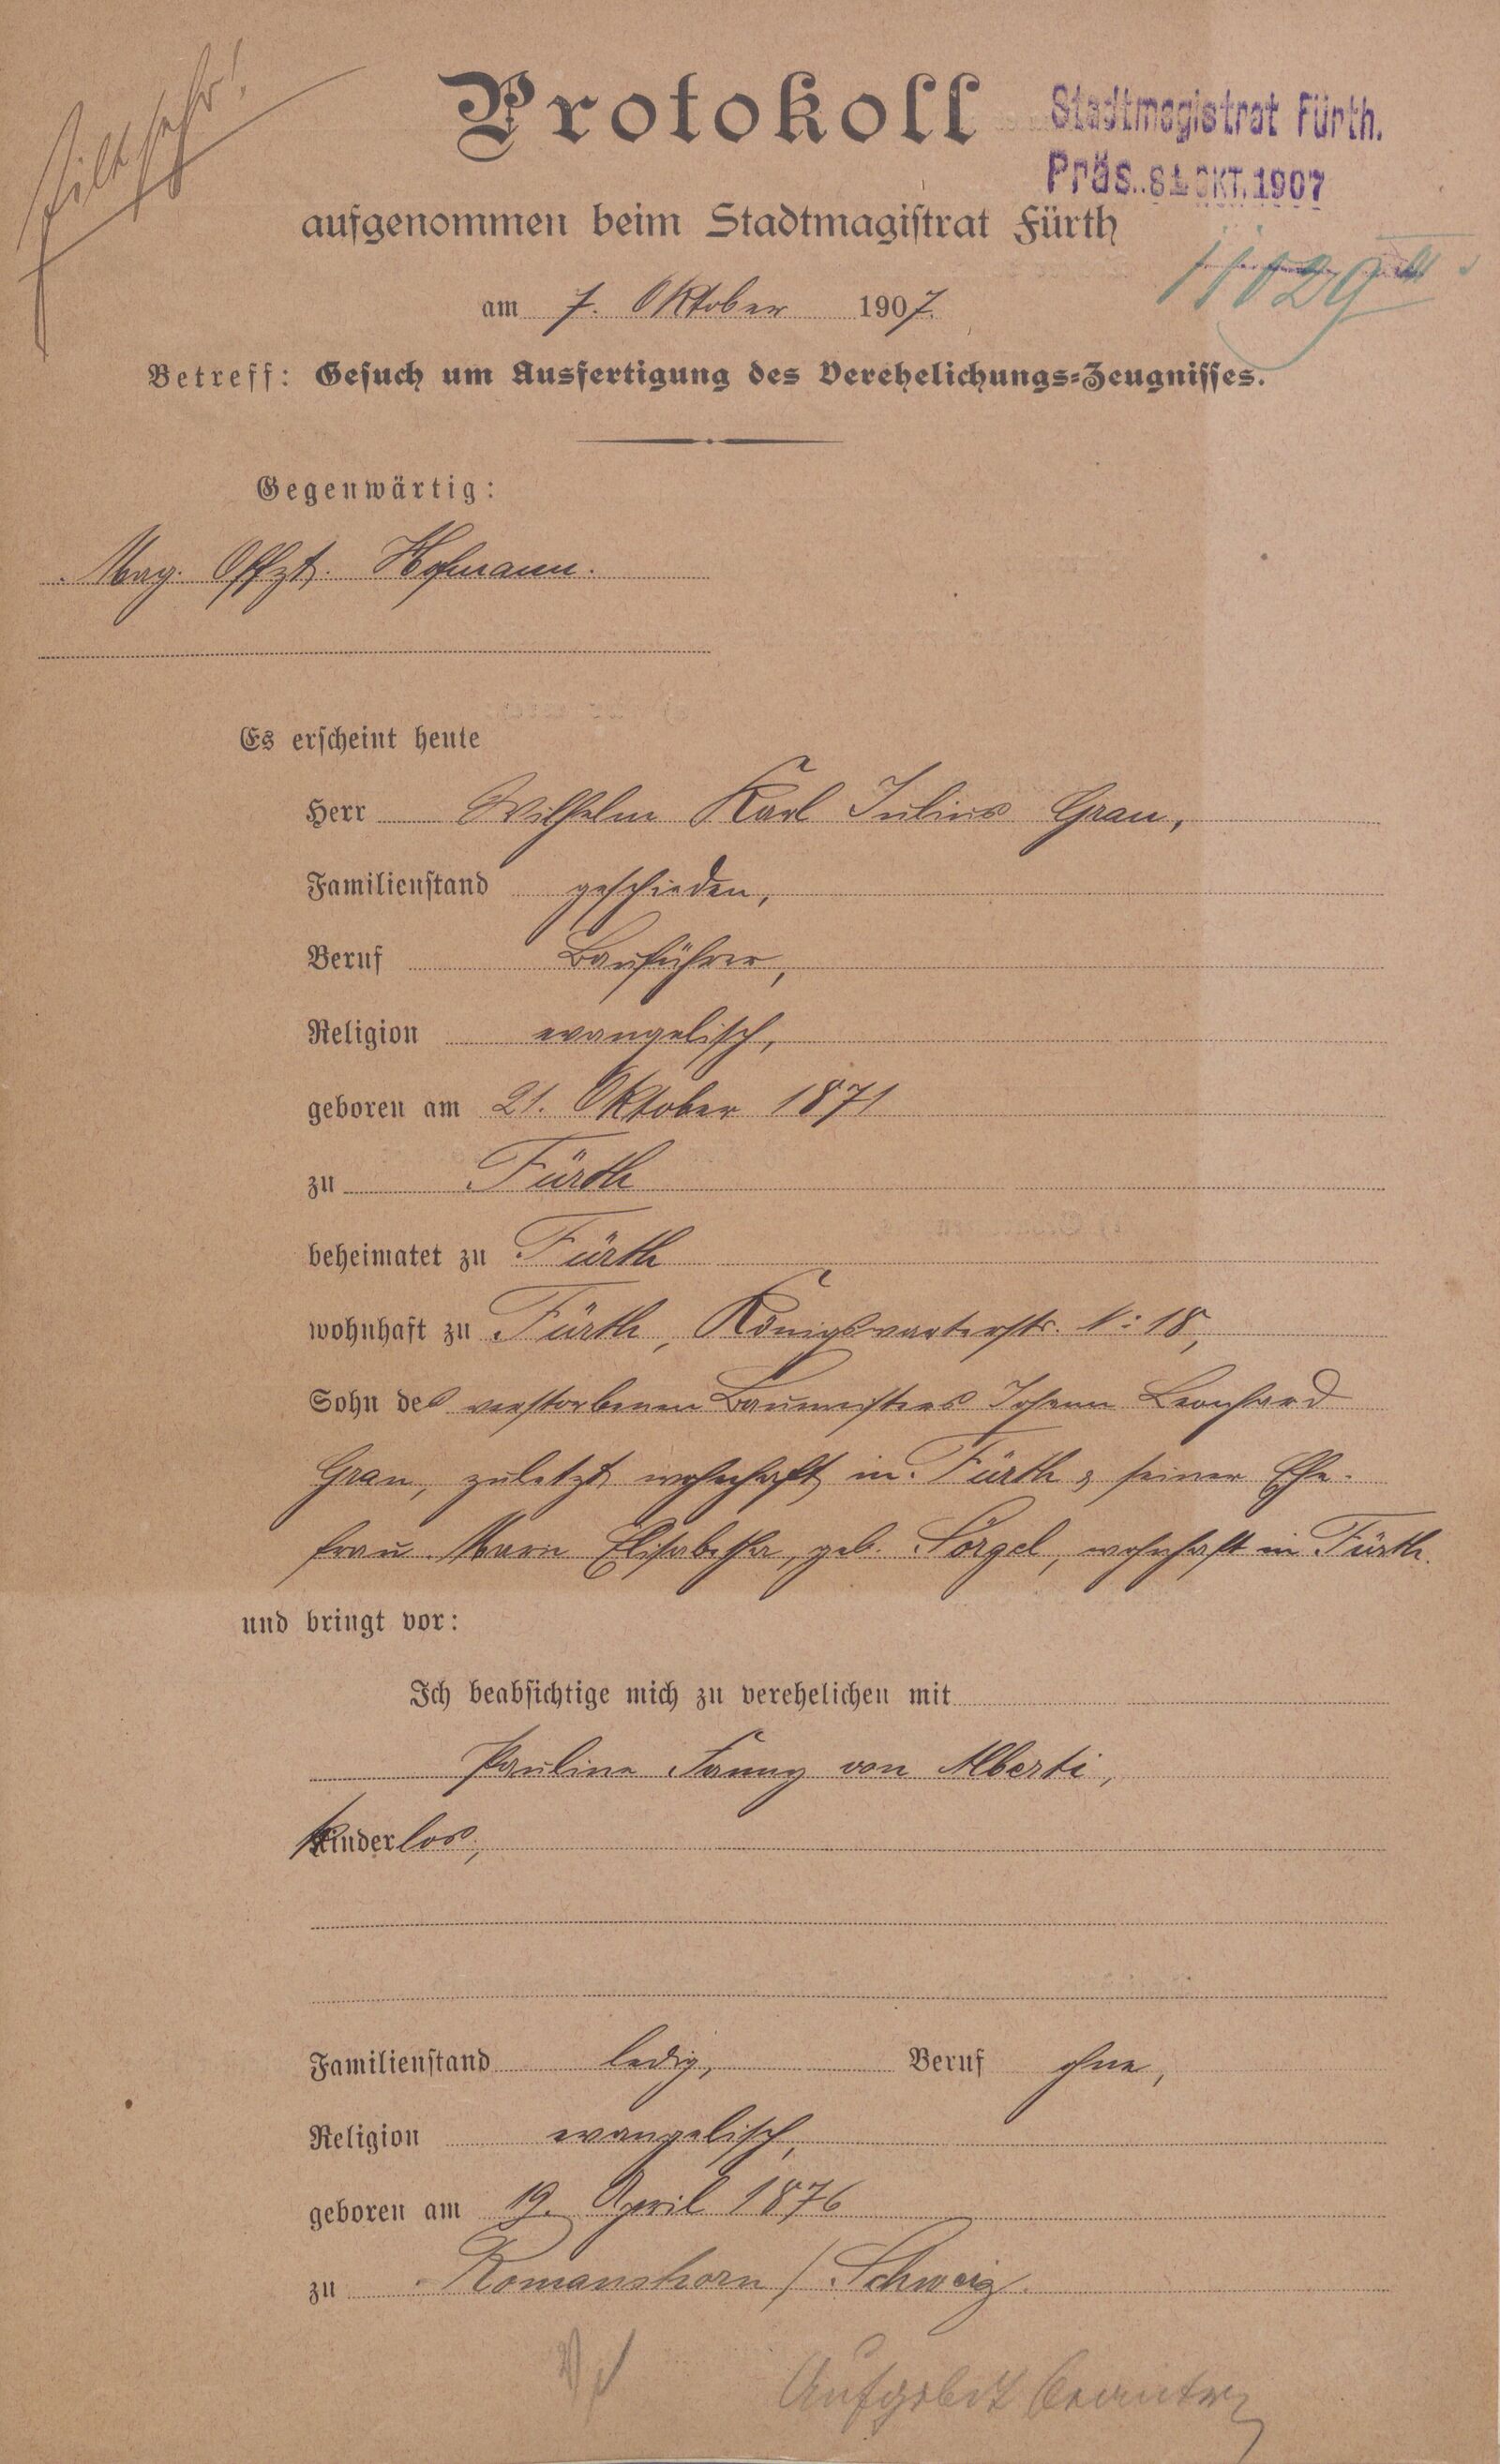 Eilt sehr!
Protokoll
Stadtmagistrat Fürth.
Präs. 8 OKT. 1907
aufgenommen beim Stadtmagistrat Fürth
11029
am 7. Oktober 1907.
Betreff: Gesuch um Ausfertigung des Verehelichungs-Zeugnisses.
Gegenwärtig:
Mag. Offzt. Hofmann.
Es erscheint heute
Herr Wilhelm Karl Julius Grau,
Familienstand geschieden,
Beruf Bauführer,
Religion evangelisch,
geboren am 21. Oktober 1871
zu Fürth
beheimatet zu Fürth
wohnhaft zu Fürth, Königswarterstr. N: 18,
Sohn des verstorbenen Baumeisters Johann Leonhard
Grau, zuletzt wohnhaft in Fürth & seiner Ehe-
frau Elisabetha, geb. Sörgel, wohnhaft in Fürth.
und bringt vor:
Ich beabsichtige mich zu verehelichen mit
Pauline Fanny von Alberti,
kinderlos,
Familienstand ledig, Beruf ohne,
Religion evangelisch,
geboren am 19. April 1876
zu Romanshorn / Schweiz.
Aufgebot